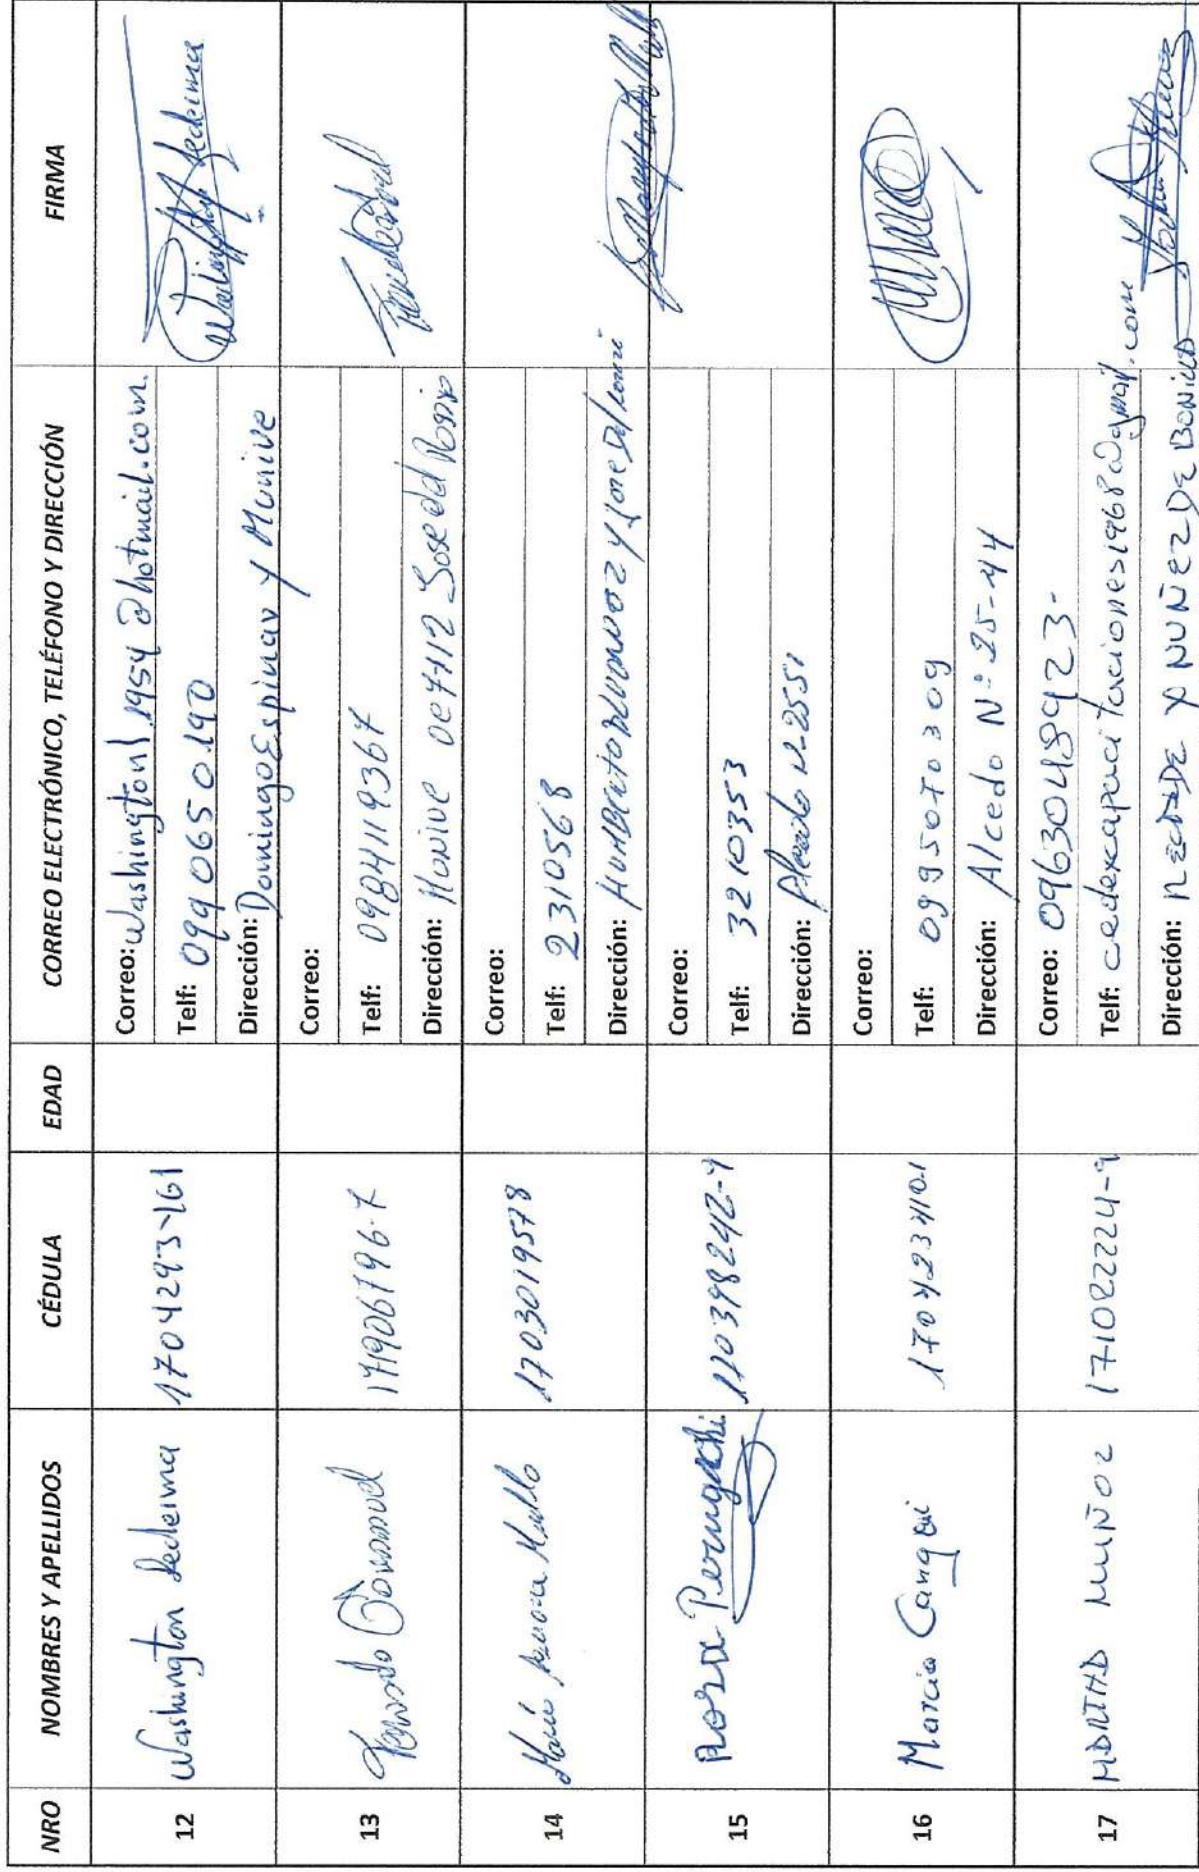 NRO NOMBRES Y APELLIDOS CÉDULA EDAD CORREO ELECTRÓNICO, TELÉFONO Y DIRECCIÓN FIRMA
12 Washington 170429346-1
Correo: Washington1.1954@hotmail.com.
Telf: 0990650190
Dirección: Domingo Espinar y Munive
13 171906796-7
Correo:
Telf: 0984119367
Dirección: Monive Oe7712 Jose del
14 1703019578
Correo:
Telf: 2310568
Dirección: y Jore
15 Rosa Perugachi 110398242-4
Correo:
Telf: 3210353
Dirección: N-2551
16 Marcia 170423410.1
Correo:
Telf: 0995070309
Dirección: Alcedo N:-25-44
17 MARTHA MUÑOZ 171022224-9
Correo: 0963048942 3-
Telf: cedexcapacitaciones1968@gmail.com
Dirección: Y NUÑEZ DE BONILLA